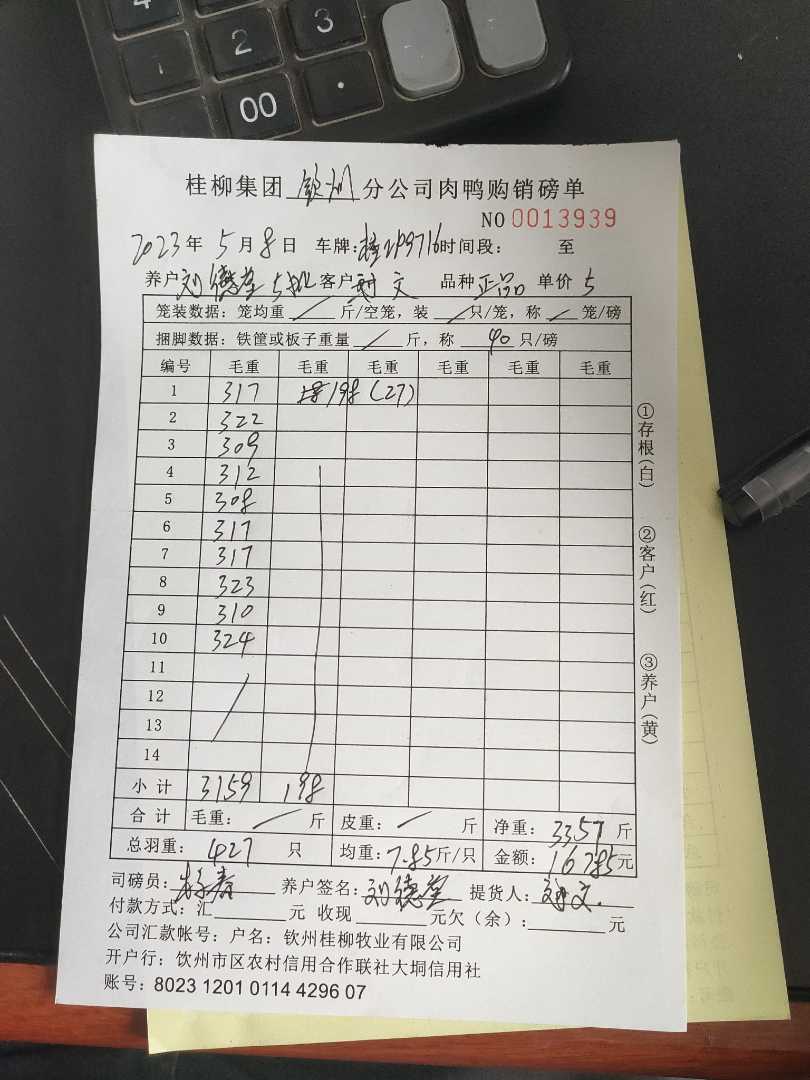 4 2 3
1 00 .
桂柳集团 钦州 分公司肉鸭购销磅单
NO 0013939
2023 年 5 月 8 日 车牌: 时间段: 至
养户 刘德莹 5批 客户 文 品种 正品 单价 5
笼装数据: 笼均重 / 斤/空笼, 装 / 只/笼, 称 / 笼/磅
捆脚数据: 铁筐或板子重量 / 斤, 称 40 只/磅
编号 毛重 毛重 毛重 毛重 毛重 毛重
1 317 198 (27)
2 322
3 309
4 312
5 308
6 317
7 317
8 323
9 310
10 324
11
12
13
14
小计 3159 198
合计 毛重: / 斤 皮重: / 斤 净重: 3357 斤
总羽重: 427 只 均重: 7.85 斤/只 金额: 16785 元
司磅员: 养户签名: 刘德莹 提货人: 文.
付款方式: 汇 元 收现 元欠(余): 元
公司汇款帐号: 户名: 钦州桂柳牧业有限公司
开户行: 饮州市区农村信用合作联社大垌信用社
账号: 8023 1201 0114 4296 07
①存根(白)
②客户(红)
③养户(黄)